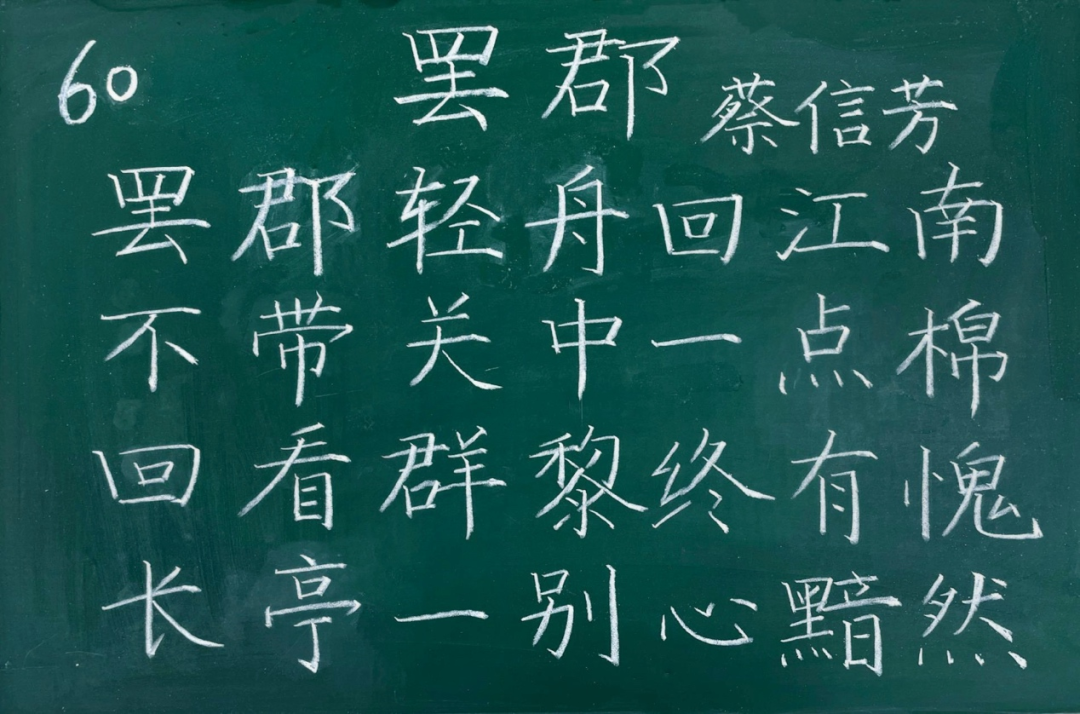 60
罢郡 蔡信芳
罢郡轻舟回江南
不带关中一点棉
回看群黎终有愧
长亭一别心黯然